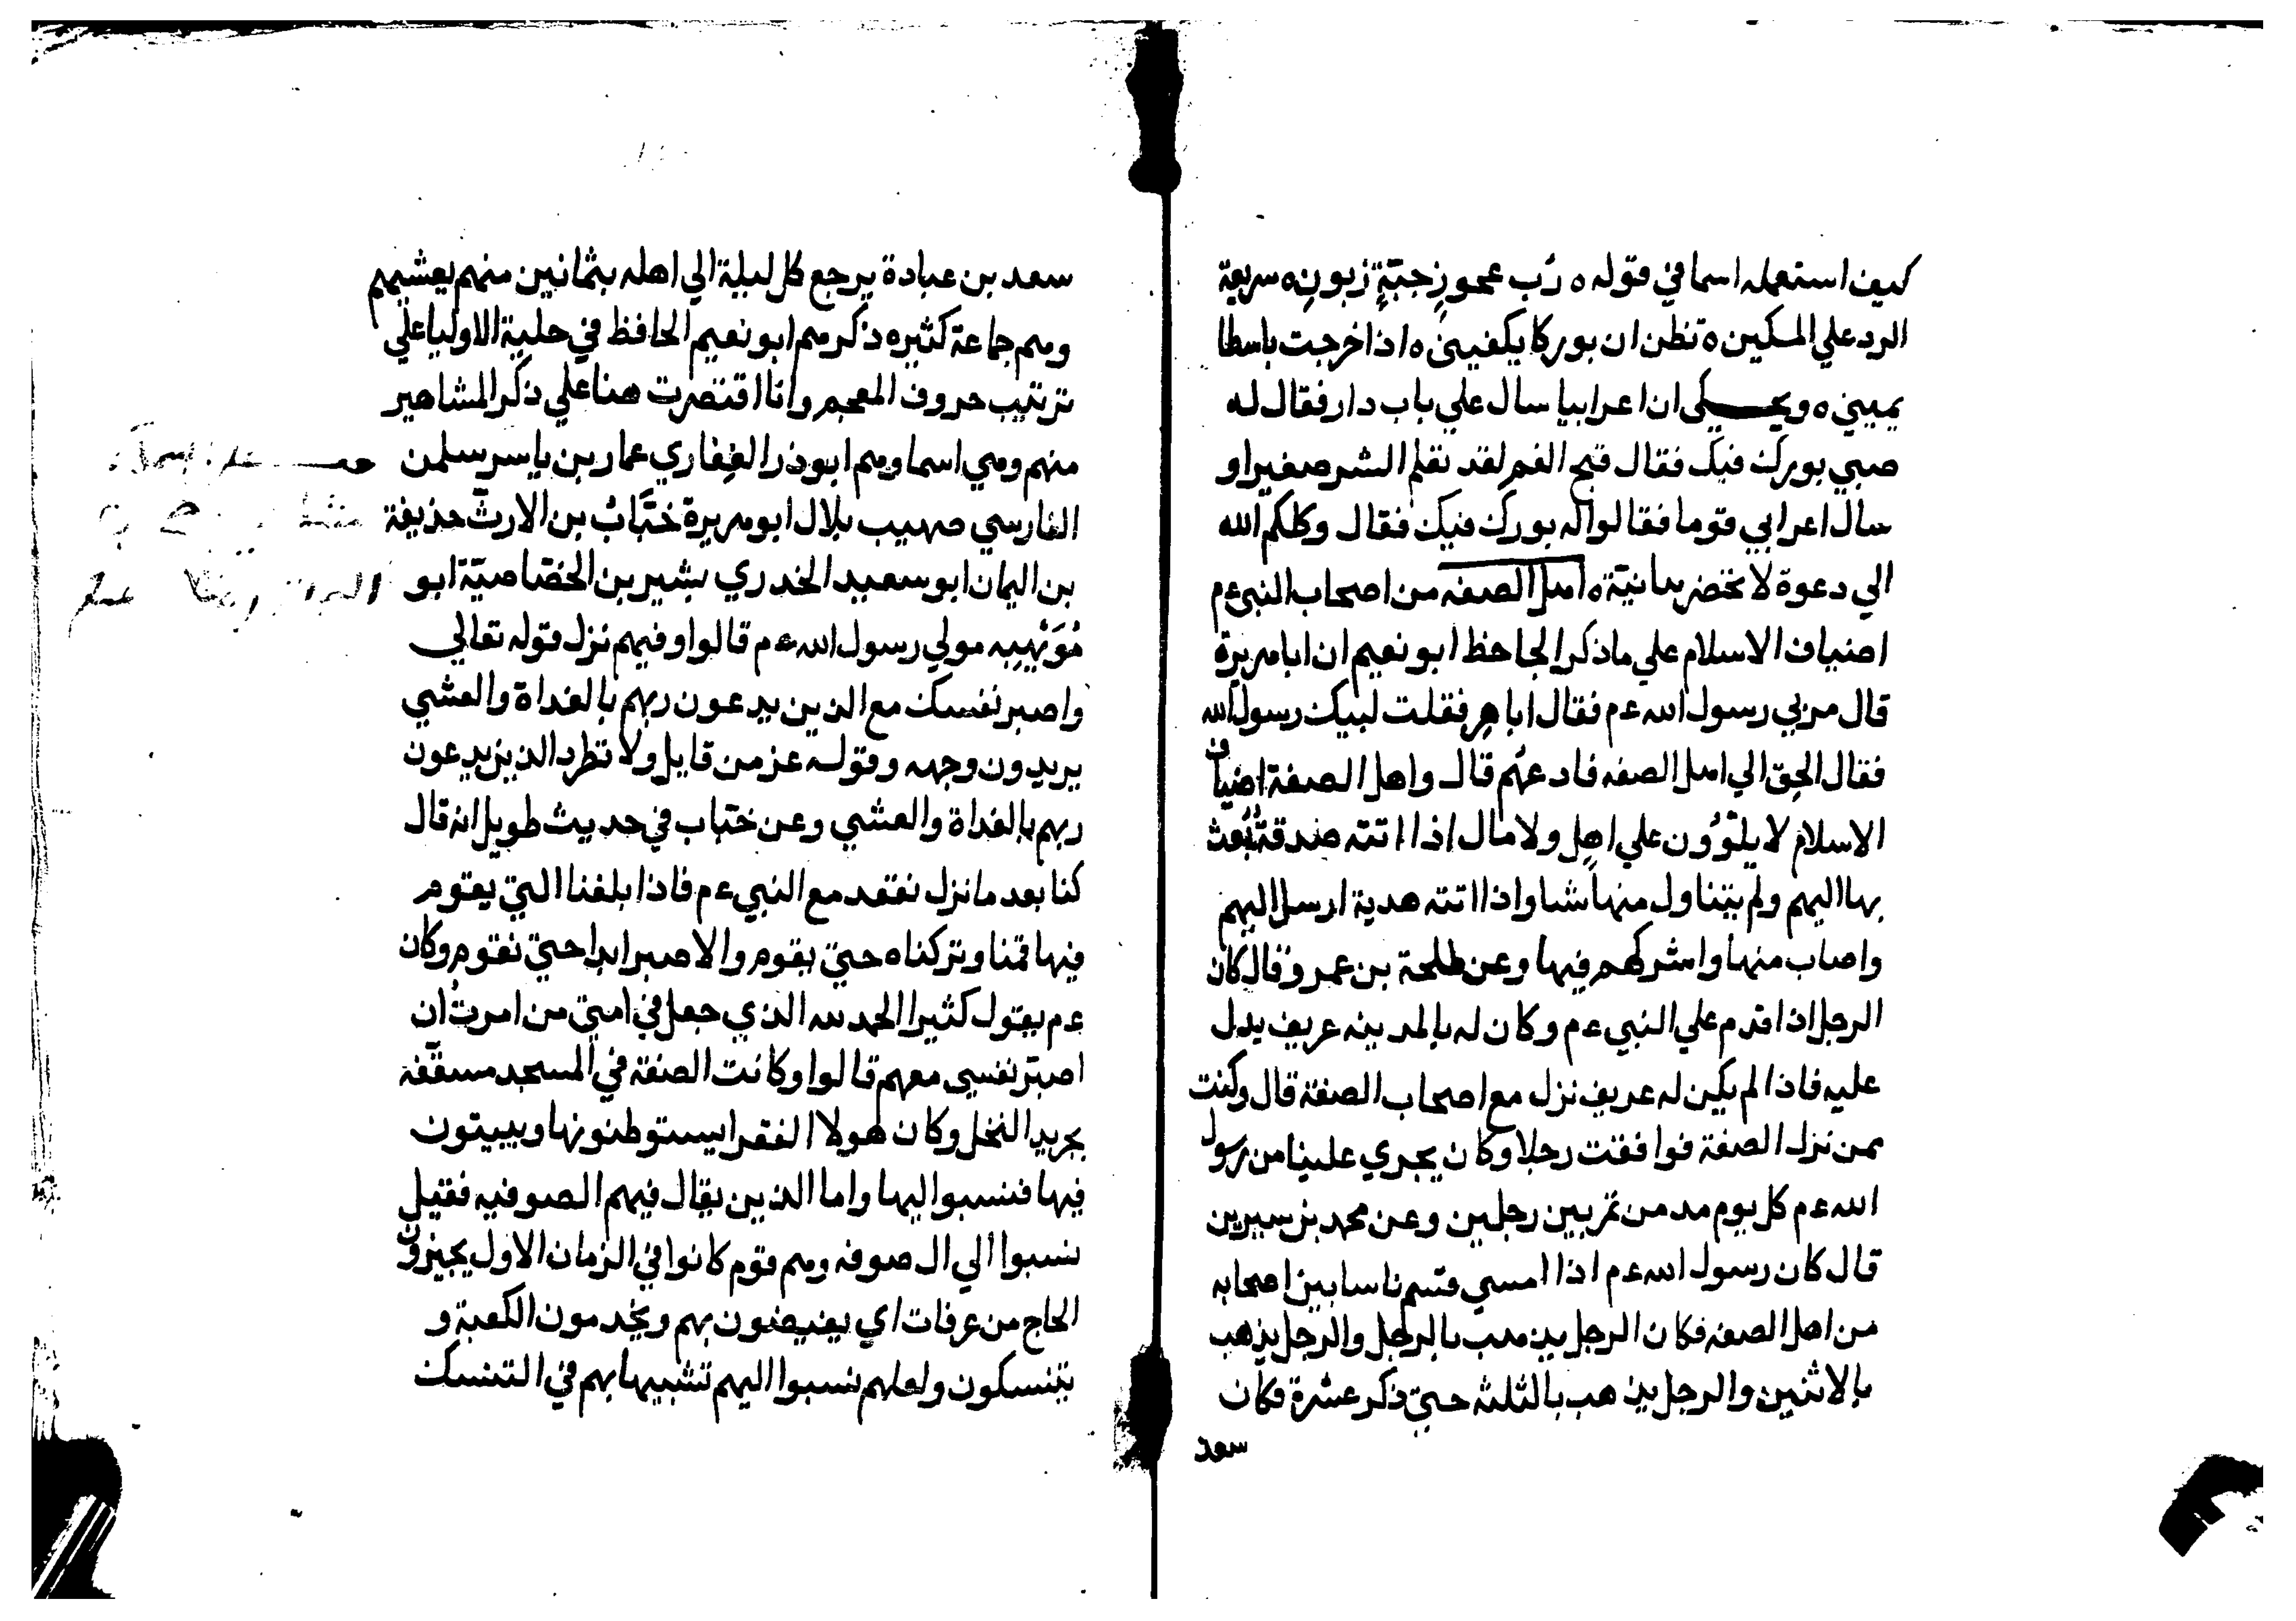 كيف استعمله اسما في قوله ه رُب عجوزٍ جبَّةٍ زبونِ ه سريعة
الرد علي المسكين ه تظن ان بوركا يكفيني ه اذا خرجت باسطا
يميني ه ويحكي ان اعرابيا سال علي باب دار فقال له
صبي بورك فيك فقال قبح الفم لقد تعلم الشر صغيرا و
سال اعرابي قوما فقالوا له بورك فيك فقال وكلكم الله
الي دعوة لا تحضرها نيّة ه اهل الصفه من اصحاب النبي ءم
اضياف الاسلام علي ما ذكر الحافظ ابو نعيم ان ابا هريرة
قال مر بي رسول الله ءم فقال ابا هِر فقلت لبيك رسول الله
فقال الحِق الي اهل الصفه فادعهُم قال واهل الصفة اضياف
الاسلام لا يلوُون علي اهلٍ ولا مال اذا اتته صدقةٌ بُعث
بها اليهم ولم يتناول منها شيا واذا اتته هدية ارسل اليهم
واصاب منها واشركهم فيها وعن طلحة بن عمرو قال كان
الرجل اذا قدم علي النبي ءم وكان له بالمدينه عريف يدل
عليه فاذا لم يكن له عريف نزل مع اصحاب الصفة قال وكنت
ممن نزل الصفة فوافقت رجلا وكان يجري علينا من رسول
الله ءم كل يوم مد من تمر بين رجلين وعن محمد بن سيرين
قال كان رسول الله ءم اذا امسي قسم ناسا بين اصحابه
من اهل الصفه فكان الرجل يذهب بالرجل والرجل يذهب
بالاثنين والرجل يذهب بالثلثه حتي ذكر عشرة فكان
سعد
سعد بن عبادة يرجع كل ليلة الي اهله بثمانين منهم يعشيهم
وهم جماعة كثيره ذكرهم ابو نعيم الحافظ في حلية الاوليا علي
ترتيب حروف المعجم وانا اقتصرت هنا علي ذكر المشاهير
منهم وهي اسماوهم ابو ذر الغِفاري عمار بن ياسر سلمن
الفارسي صهيب بلال ابو هريرة خبَّابُ بن الارتّ حذيفة
بن اليمان ابو سعيد الخدري بشير بن الخصاصيّة ابو
مُوَيْهِبِه مولي رسول الله ءم قالوا وفيهم نزل قوله تعالي
واصبر نفسك مع الذين يدعون ربهم بالغداة والعشي
يريدون وجهه وقوله عز من قايل ولا تطرد الذين يدعون
ربهم بالغداة والعشي وعن خبّاب في حديث طويل انه قال
كنا بعد ما نزل نقعد مع النبي ءم فاذا بلغنا التي يقوم
فيها قمنا وتركناه حتي يقوم والا صبر ابدا حتي نقوم وكان
ءم يقول كثيرا الحمد لله الذي جعل في امتي من امرتُ ان
اصبّر نفسي معهم قالوا وكانت الصفة في المسجد مسقّفه
بجريد النخل وكان هولا الفقرا يستوطنونها ويبيتون
فيها فنسبوا اليها واما الذين يقال فيهم الصوفيه فقيل
نسبوا الي ال صوفه وهم قوم كانوا في الزمان الاول يجيزون
الحاج من عرفات اي يفيضون بهم ويخدمون الكعبة و
يتنسكون ولعلهم نسبوا اليهم تشبيها بهم في التنسك